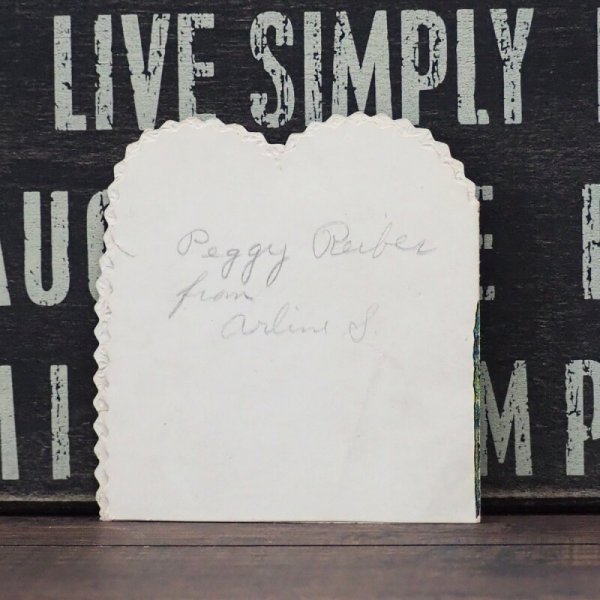 LIVE SIMPLY
AU
Peggy Reiber
from
Arline S.
E
MP